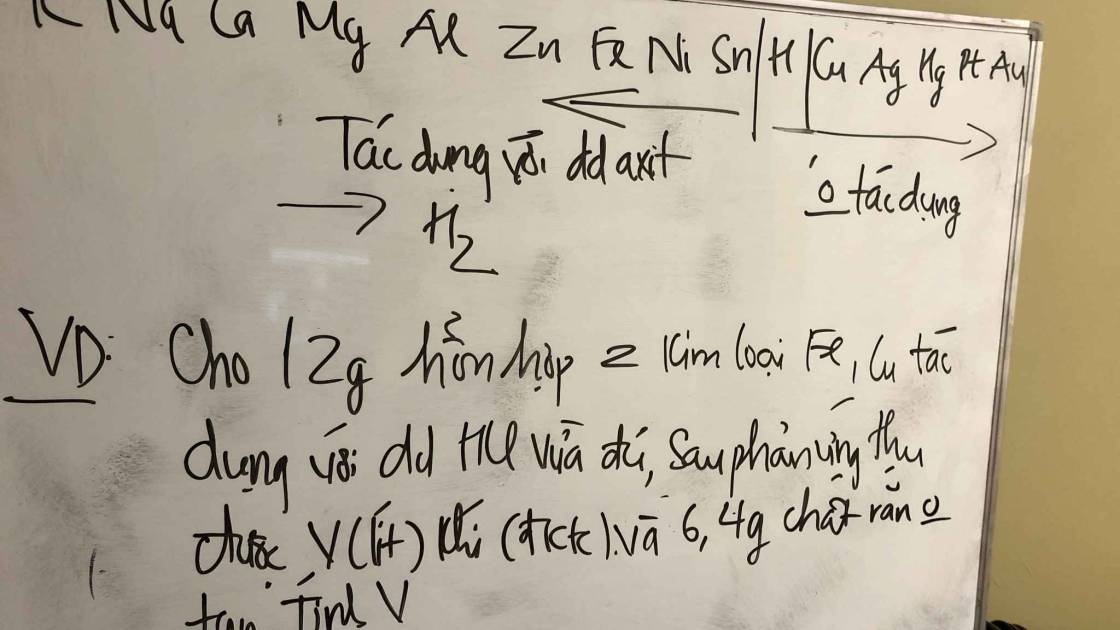 K Na Ca Mg Al Zn Fe Ni Sn | H | Cu Ag Hg Pt Au
Tác dụng với dd axit
o tác dụng
→ H2
VD: Cho 12g hỗn hợp 2 kim loại Fe, Cu tác
dụng với dd HCl vừa đủ, sau phản ứng thu
được V(lít) khí (đktc). và 6,4g chất rắn o
tan Tính V